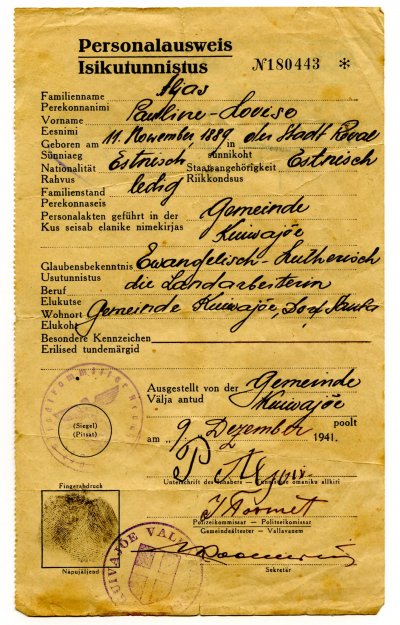 Personalausweis
Isikutunnistus
№180443 *
Familienname
Perekonnanimi
Vorname Pauline-Lovise
Eesnimi
Geboren am 11. November, 1889 in der Stadt Reval
Sünniaeg sünnikoht
Nationalität Estnisch Staatsangehörigkeit Estnisch
Rahvus Riikkondsus
Familienstand ledig
Perekonnaseis
Personalakten geführt in der Gemeinde
Kus seisab elanike nimekirjas Kuiwajõe
Glaubensbekenntnis Ewangelisch-Lutherisch
Usutunnistus
Beruf die Landarbeiterin
Elukutse
Wohnort Gemeinde Kuiwajõe, Dorf
Elukoht
Besondere Kennzeichen
Erilised tundemärgid
Ausgestellt von der Gemeinde
Välja antud Kuiwajõe
poolt
am 9. Dezember 1941.
(Siegel)
(Pitsat)
Unterschrift des Inhabers — omaniku allkiri
Fingerabdruck
Polizeikommissar — Politseikomissar
Gemeindeältester — Vallavanem
KUIVAJÕE
Näpujäljend
Sekretär